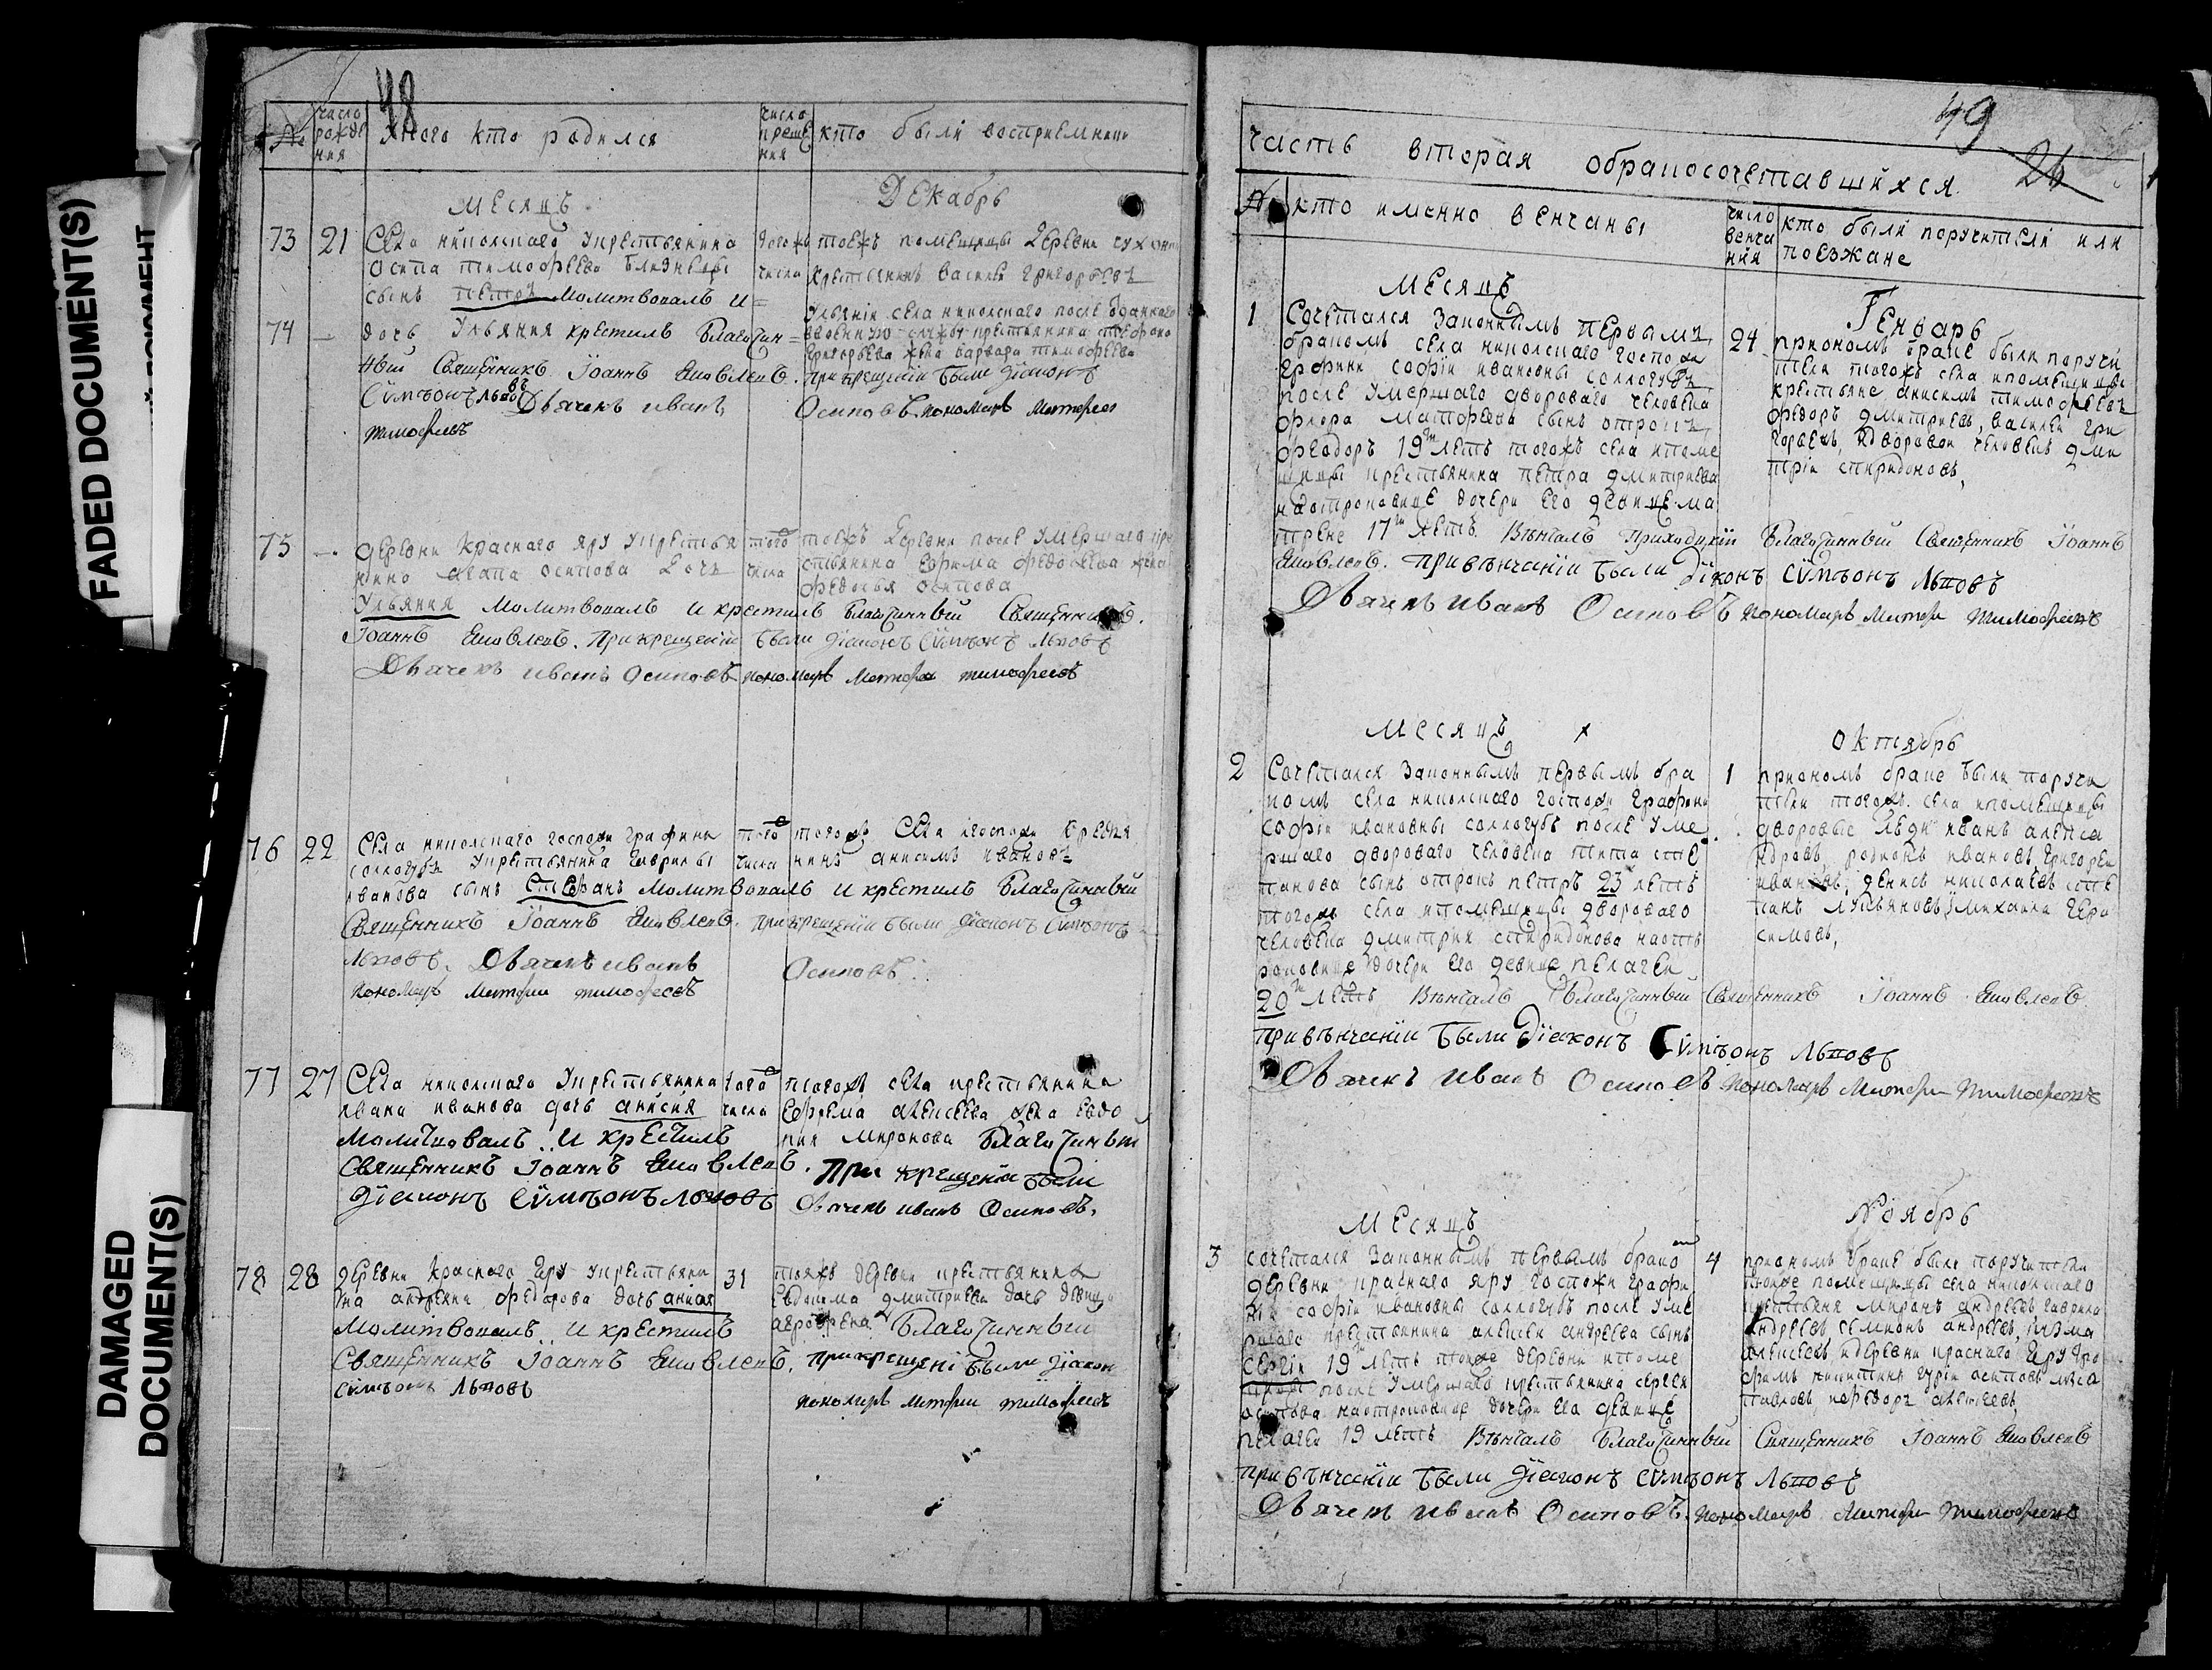 FADED DOCUMENT(S)
DAMAGED
DOCUMENT(S)
48
№
число
рожде
ния
Унего кто родился
число
креще
ния
кто были восприемники
Месяцъ
Декабрь
73 21 Села николскаго укрестьянина
осипа тимофеева близнецы
сынъ петръ Молитвовалъ и=
74 — дочь Ульяния крестилъ Благочин=
ный Священникъ Іоаннъ Яковлевъ.
Сѵмѣонъ Львовъ Дьячекъ иванъ
тимофеевъ
тогожъ
числа
тоежъ помещицы деревни
крестьянинъ василеи григорьевъ
Ульяніи села николскаго после отданнаго
ввоенную службу крестьянина
григорьева жена варвара тимофеева
при крещеніи были діаконъ
Осиповъ, пономарь Матфеи
75 — деревни Красного яру укрестья
нина агапа осипова дочь
Ульяния Молитвовалъ и крестилъ Благочинный Священникъ.
Іоаннъ Яковлевъ. При крещеніи были діаконъ Сѵмѣонъ Львовъ
Дьячекъ иванъ Осиповъ пономарь Матфеи тимофеевъ
того
числа
тоежъ деревни после умершаго кре
стьянина ефрима федосеева жена
федосья осипова
76 22 Села николскаго госпожи графини
соллогубъ укрестьянина гаврилы
иванова сынъ Стефанъ Молитвовалъ и крестилъ Благочинный
Священникъ Іоаннъ Яковлевъ. при крещеніи были діаконъ Сѵмѣонъ
Львовъ. Дьячекъ иванъ Осиповъ.
пономарь Матфеи тимофеевъ
того
числа
тогожъ села игоспожи крестья
нинъ анисимъ ивановъ
77 27 Села николскаго укрестьянина
ивана иванова дочь анисия
Молитвовалъ и крестилъ
Священникъ Іоаннъ Яковлевъ.
діаконъ Сѵмѣонъ Львовъ
того
числа
тогожъ села крестьянина
ефрема алексеева жена евдо
кия миронова Благочинный
При крещеніи были
Дьячекъ иванъ Осиповъ.
78 28 деревни Красного яру укрестьяни
на андреяна федорова дочь анисия
Молитвовалъ и крестилъ
Священникъ Іоаннъ Яковлевъ.
Сѵмѣонъ Львовъ
31
тояжъ деревни крестьянина
евдокима дмитриева дочь девица
агрофена Благочинный
при крещеніи были діакон
пономарь Матфеи тимофеевъ
49
26
часть вторая обракосочетавшихся
№
кто именно венчаны
число
венча
ния
кто были поручители или
поезжане
Месяцъ
Генварь
1 Сочетался Законнымъ первымъ
бракомъ села николскаго госпожи
графини софіи ивановны соллогубъ
после умершаго двороваго человека
флора матфеева сынъ отрокъ
феодоръ 19ти летъ тогожъ села ипоме
щицы крестьянина петра дмитриева
наотроковице дочери его девице ма
трене 17ти летъ. Вѣнчалъ Приходскій Благочинный Священникъ Іоаннъ
Яковлевъ. При вѣнчаніи были діконъ Сѵмѣонъ Львовъ
Дьячекъ иванъ Осиповъ пономарь Матфеи Тимофеевъ
24
приономъ браке были поручи
тели тогожъ села ипомещицы
крестьяне анисимъ тимофеевъ
федоръ дмитриевъ, василеи гри
горьевъ, идворовои человекъ дми
трiи спиридоновъ,
Месяцъ
Октябрь
2 Сочетался Законнымъ первымъ бра
комъ села николскаго госпожи графини
софіи ивановны соллогубъ после уме
ршаго двороваго человека тита сте
панова сынъ отрокъ петръ 23 летъ
тогожъ села ипомещицы двороваго
человека дмитрия спиридонова наот
роковице дочери его девице пелагеи
20ти летъ Вѣнчалъ Благочинный Священникъ Іоаннъ Яковлевъ.
при вѣнчаніи были діаконъ Сѵмѣонъ Львовъ
Дьячекъ иванъ Осиповъ пономарь Матфеи Тимофеевъ
1
приономъ браке были поручи
тели тогожъ села ипомещицы
дворовые люди иванъ алекса
ндровъ, родионъ ивановъ, григореи
ивановъ, денисъ николаевъ сте
панъ лукьяновъ, имихаила гера
симовъ,
Месяцъ
Ноябрь
3 сочетался Законнымъ первымъ брако
деревни краснаго яру госпожи графи
ни софіи ивановны соллогубъ после уме
ршаго крестьянина алексеи андреева сынъ
сергіи 19ти летъ тоеже деревни ипоме
щицы после умершаго крестьянина сергея
осипова наотроковице дочери его девице
пелагеи 19 летъ Вѣнчалъ Благочинный Священникъ Іоаннъ Яковлевъ
при вѣнчаніи были діаконъ Сѵмѣонъ Львовъ
Дьячекъ иванъ Осиповъ. пономарь Матфеи Тимофеевъ
4
приономъ браке были поручители
тоеже помещицы села николскаго
крестьяня миронъ андреевъ гаврила
андреевъ, семионъ андреевъ, козма
алексеевъ идеревни красного яру
гурiи осиповъ
павловъ, ифедоръ алексеевъ,